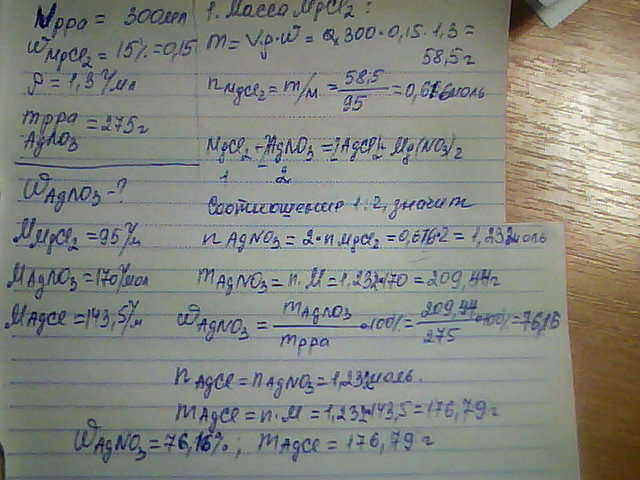 Vрра = 300мл
WMgCl₂ = 15% = 0,15
ρ = 1,3 г/мл
mрра AgNO₃ = 275г
WAgNO₃ - ?
MMgCl₂ = 95 г/м
MAgNO₃ = 170 г/мол
MAgCl = 143,5 г/м
1. Масса MgCl₂:
m = V·ρ·W = 300·0,15·1,3 =
58,5г
nMgCl₂ = m/M = 58,5/95 = 0,616моль
MgCl₂ + 2AgNO₃ = 2AgCl + Mg(NO₃)₂
1 2
Соотношение 1:2, значит
nAgNO₃ = 2·nMgCl₂ = 0,616·2 = 1,232моль
mAgNO₃ = n·M = 1,232·170 = 209,44г
WAgNO₃ = mAgNO₃/mрра ·100% = 209,44/275 ·100% = 76,16
nAgCl = nAgNO₃ = 1,232моль.
mAgCl = n·M = 1,232·143,5 = 176,79г
WAgNO₃ = 76,16%; mAgCl = 176,79г